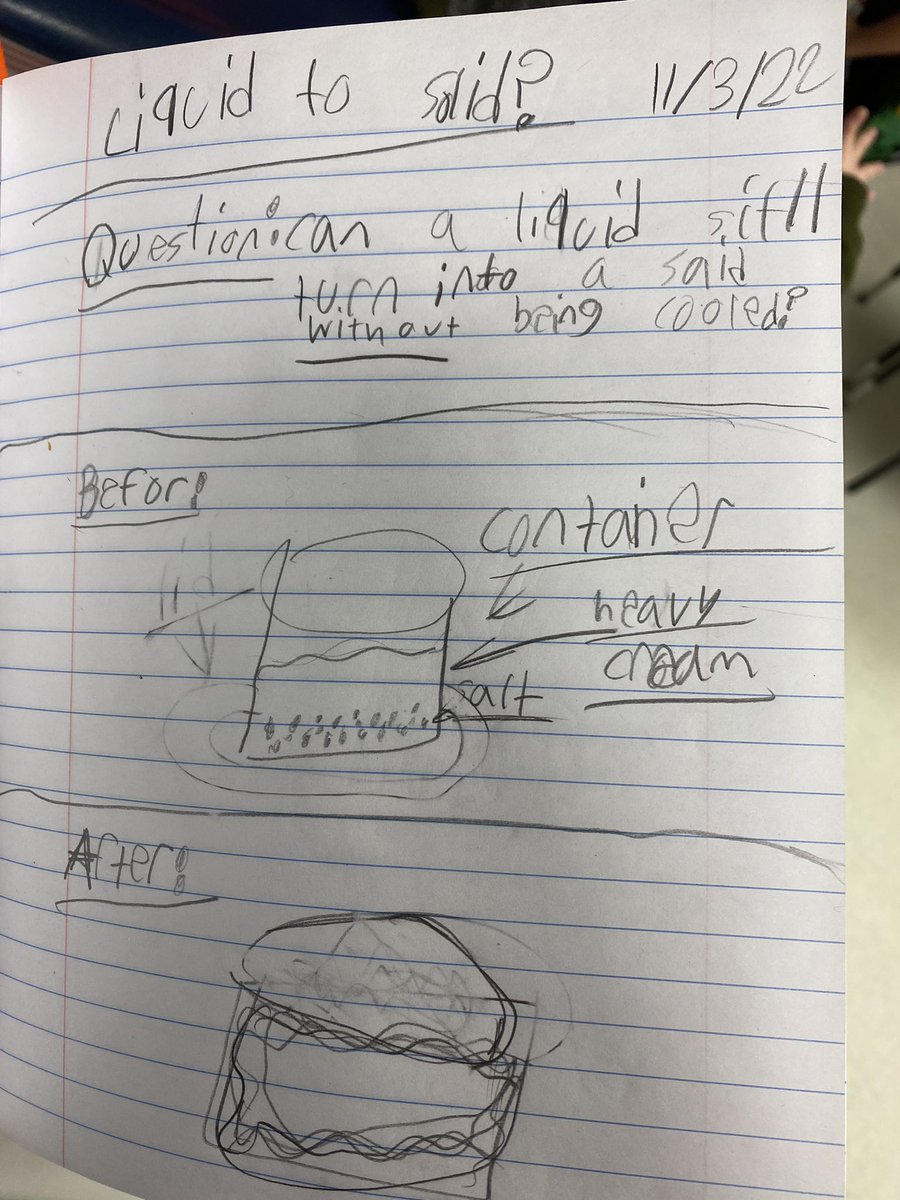 Liquid to solid? 11/3/22
Question: can a liquid still
turn into a solid
without being cooled?
Befor:
container
lid
heavy
cream
salt
After: